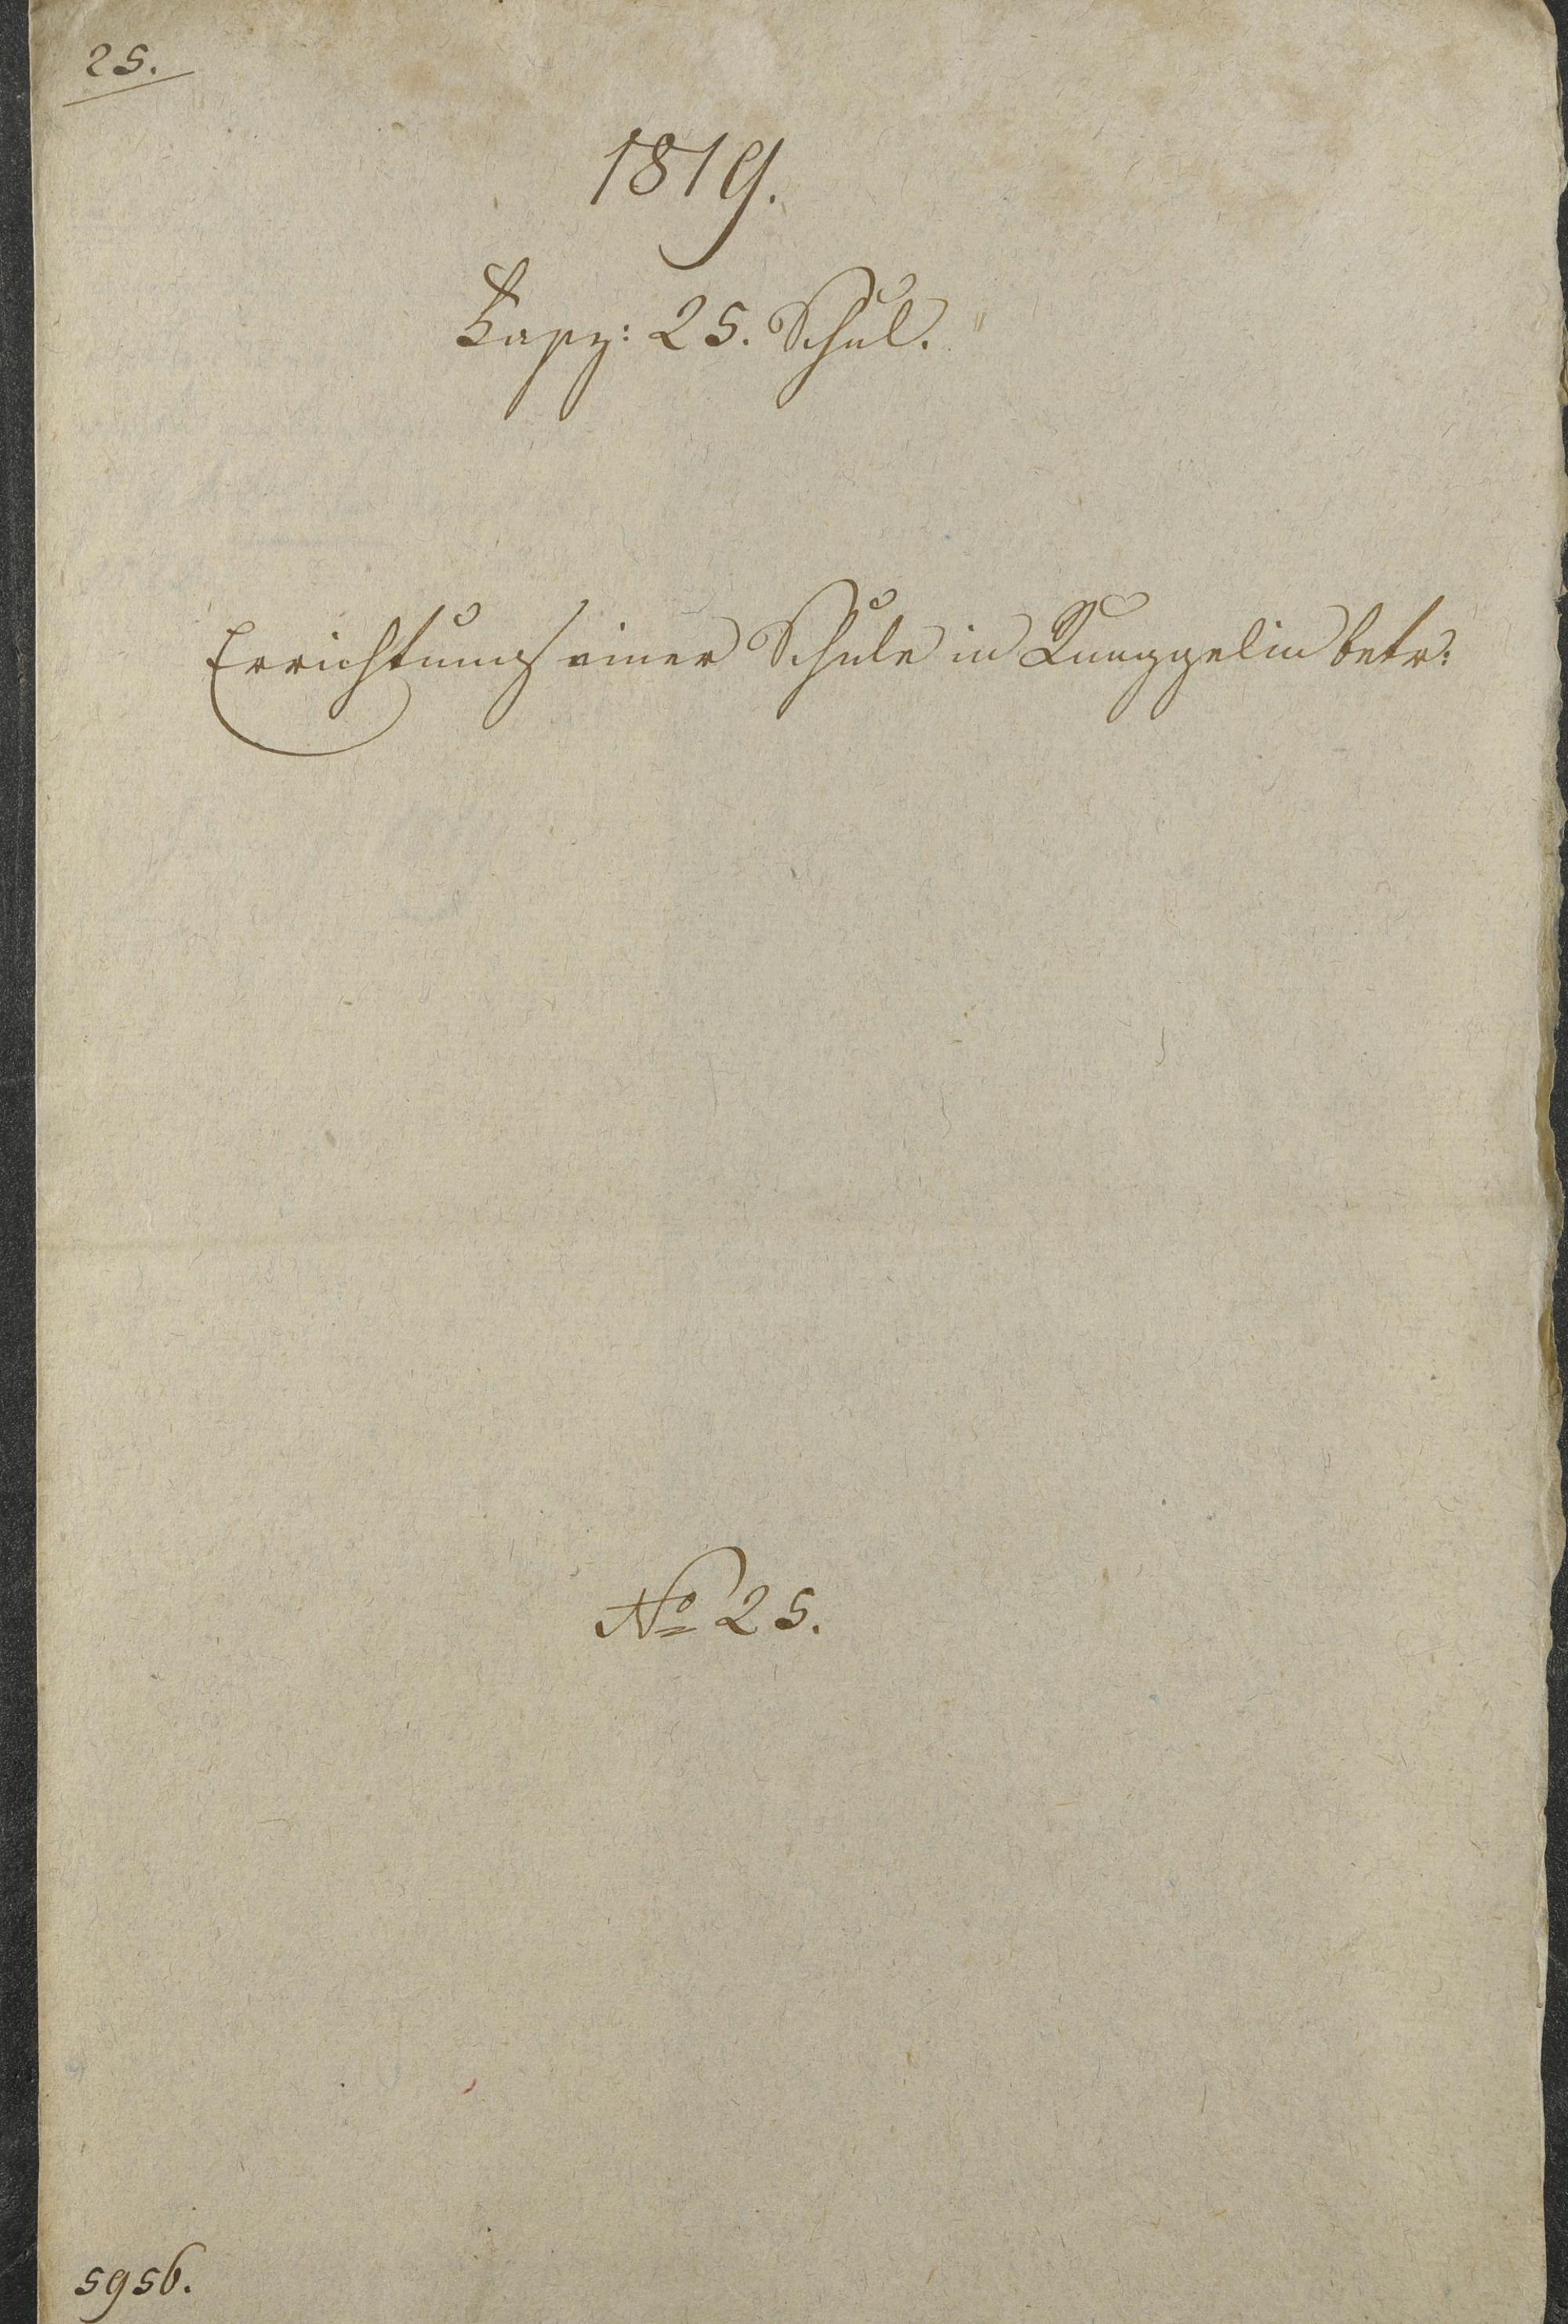 25.
1819.
Fasz: 25. Schul.
Errichtung einer Schule in Runggelin betr:
Nº 25.
5956.